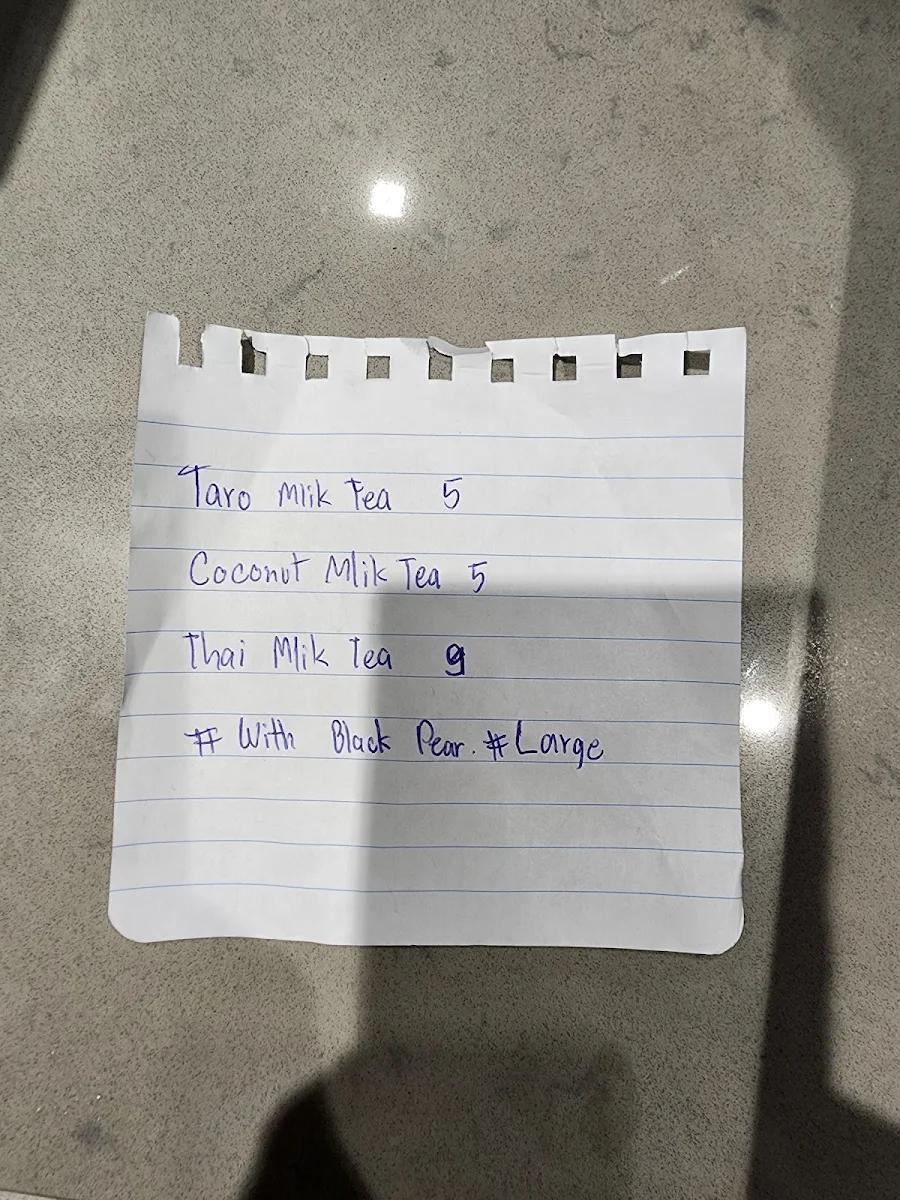 Taro Mlik Tea 5
Coconut Mlik Tea 5
Thai Mlik Tea 9
# With Black Pear. #Large